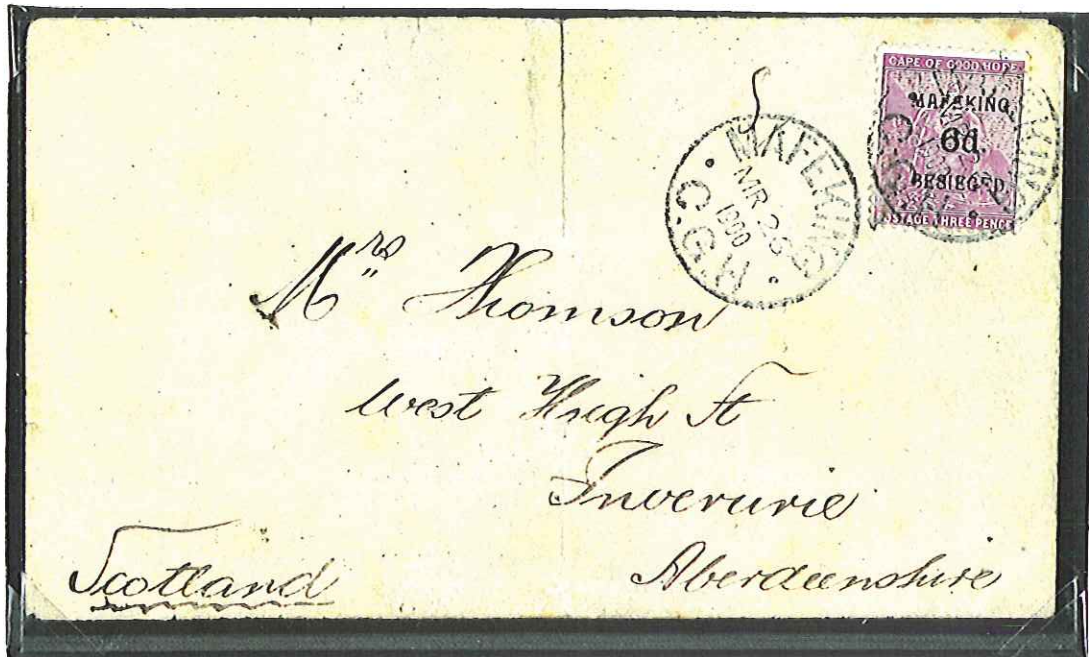 CAPE OF GOOD HOPE
MAFEKING
6d.
BESIEGED.
POSTAGE THREE PENCE
MAFEKING
MR 26
1900
C.G.H.
Mrs Thomson
West High St
Inverurie
Aberdeenshire
Scotland